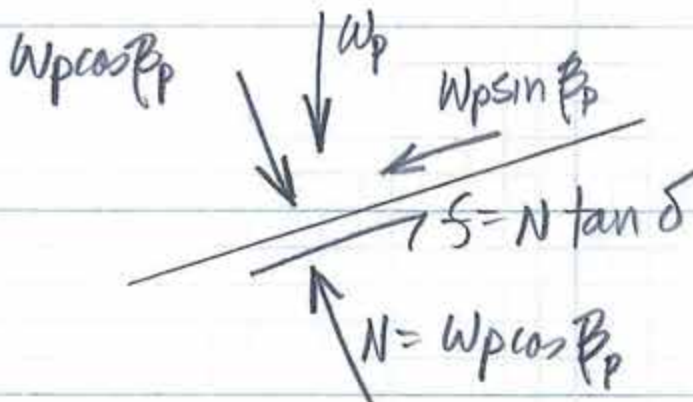 Wp
Wpcosβp
Wpsinβp
S = N tan δ
N = Wpcosβp